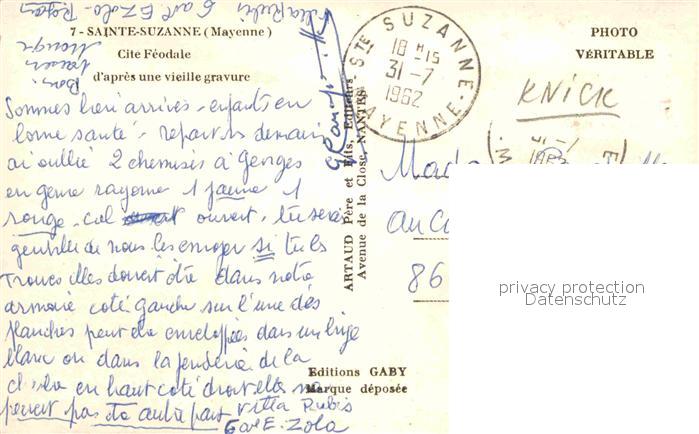 Villa Rubis
6 av E. Zola - Royan
7 - SAINTE-SUZANNE (Mayenne)
Cité Féodale
d'après une vieille gravure
Bon.
PHOTO
VÉRITABLE
STE SUZANNE
18 H 15
31-7
1962
MAYENNE
KNICK
Sommes bien arrivés - enfants en
bonne santé - repartons demain
ai oublié 2 chemises à Georges
en genre rayonne 1 jaune 1
rouge - col ouvert, tu seras
gentille de nous les envoyer si tu les
trouves elles doivent être dans notre
armoire coté gauche sur l'une des
planches peut être enveloppées dans un linge
blanc ou dans la penderie de la
en haut coté droit elles ne
peuvent pas être autre part
Villa Rubis
6 av E. Zola
ARTAUD Père et Fils, Editeurs
Avenue de la Close, NANTES
Editions GABY
Marque déposée
au
86
privacy protection
Datenschutz